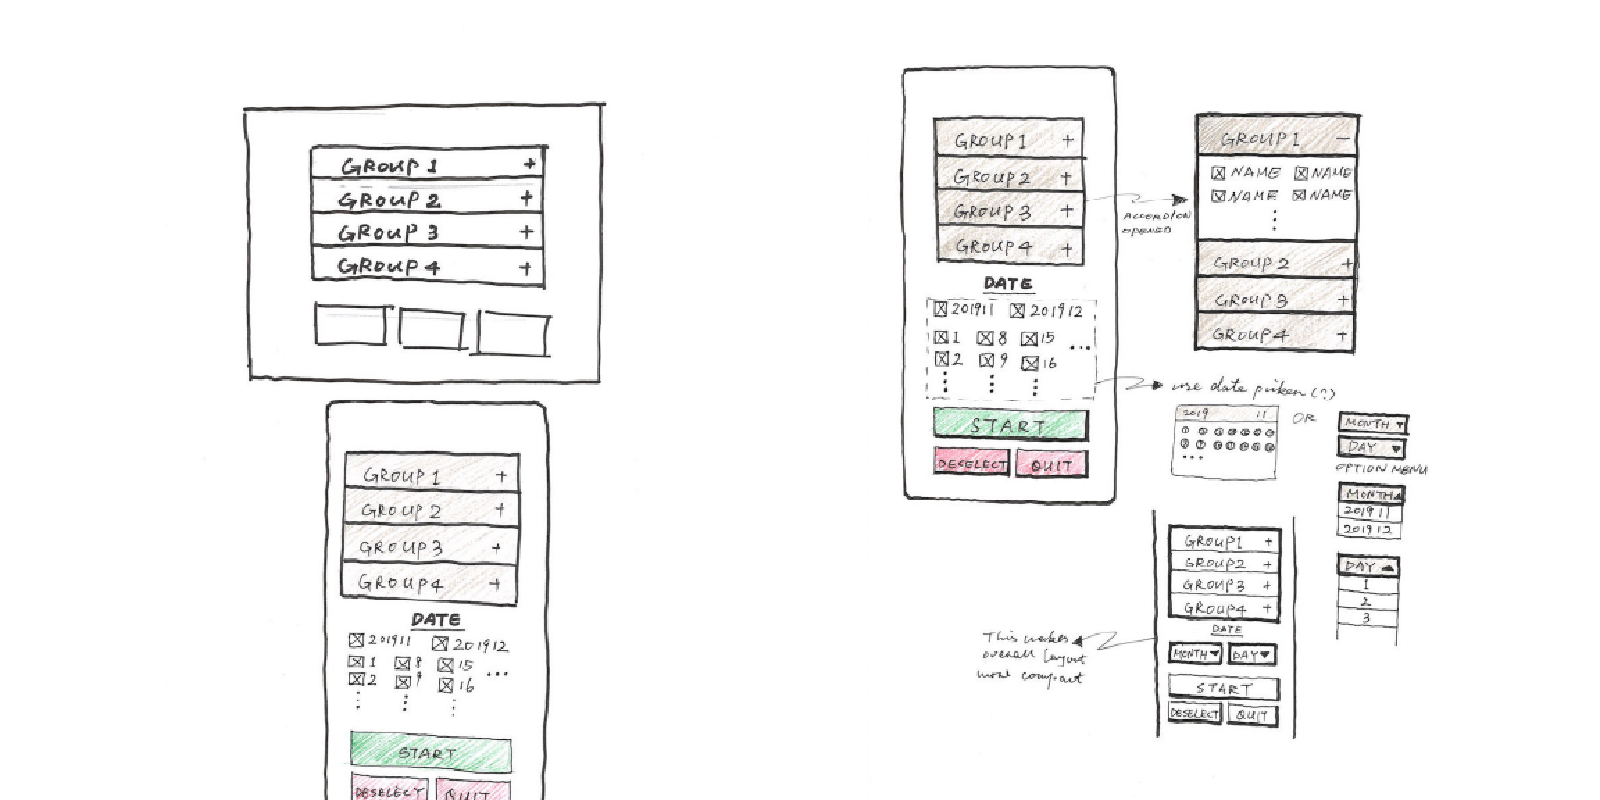 GROUP 1 +
GROUP 2 +
GROUP 3 +
GROUP 4 +
GROUP 1 +
GROUP 2 +
GROUP 3 +
GROUP 4 +
DATE
201911 201912
1 8 15 ...
2 9 16
START
DESELECT QUIT
GROUP 1 +
GROUP 2 +
GROUP 3 +
GROUP 4 +
DATE
201911 201912
1 8 15 ...
2 9 16
START
DESELECT QUIT
ACCORDION
OPENED
GROUP 1 -
NAME NAME
NAME NAME
GROUP 2 +
GROUP 3 +
GROUP 4 +
use date picker (?)
2019 11
OR
MONTH ▼
DAY ▼
OPTION MENU
MONTH ▲
201911
201912
DAY ▲
1
2
3
GROUP1 +
GROUP2 +
GROUP3 +
GROUP4 +
DATE
MONTH ▼ DAY ▼
START
DESELECT QUIT
This makes
overall layout
more compact